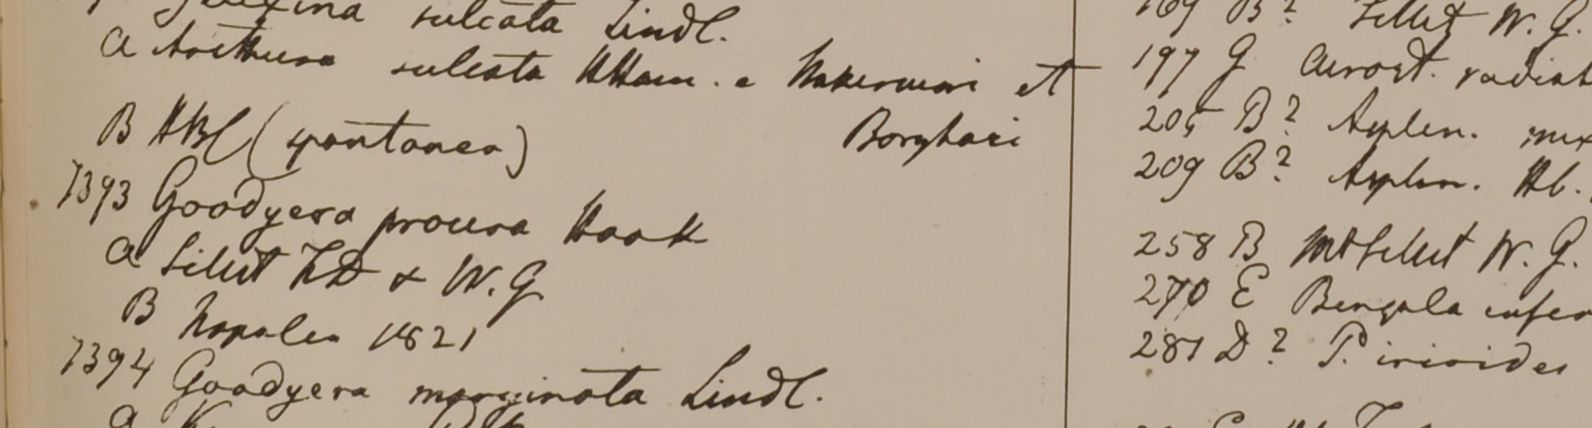 sulcata Lindl.
a Arethusa sulcata HHam. e et
Borghari
B HBC (spontanea)
7393 Goodyera procera Hook
a Silhet FD & W. G
B Napalia 1821
7394 Goodyera marginata Lindl.
a
169 B? Sillet W. G.
197 G Acrost. radiat
205 B? Asplen.
209 B? Asplen. Hb.
258 B Mt Sillet W. G.
270 E Bengala infer
281 D? P. irioides